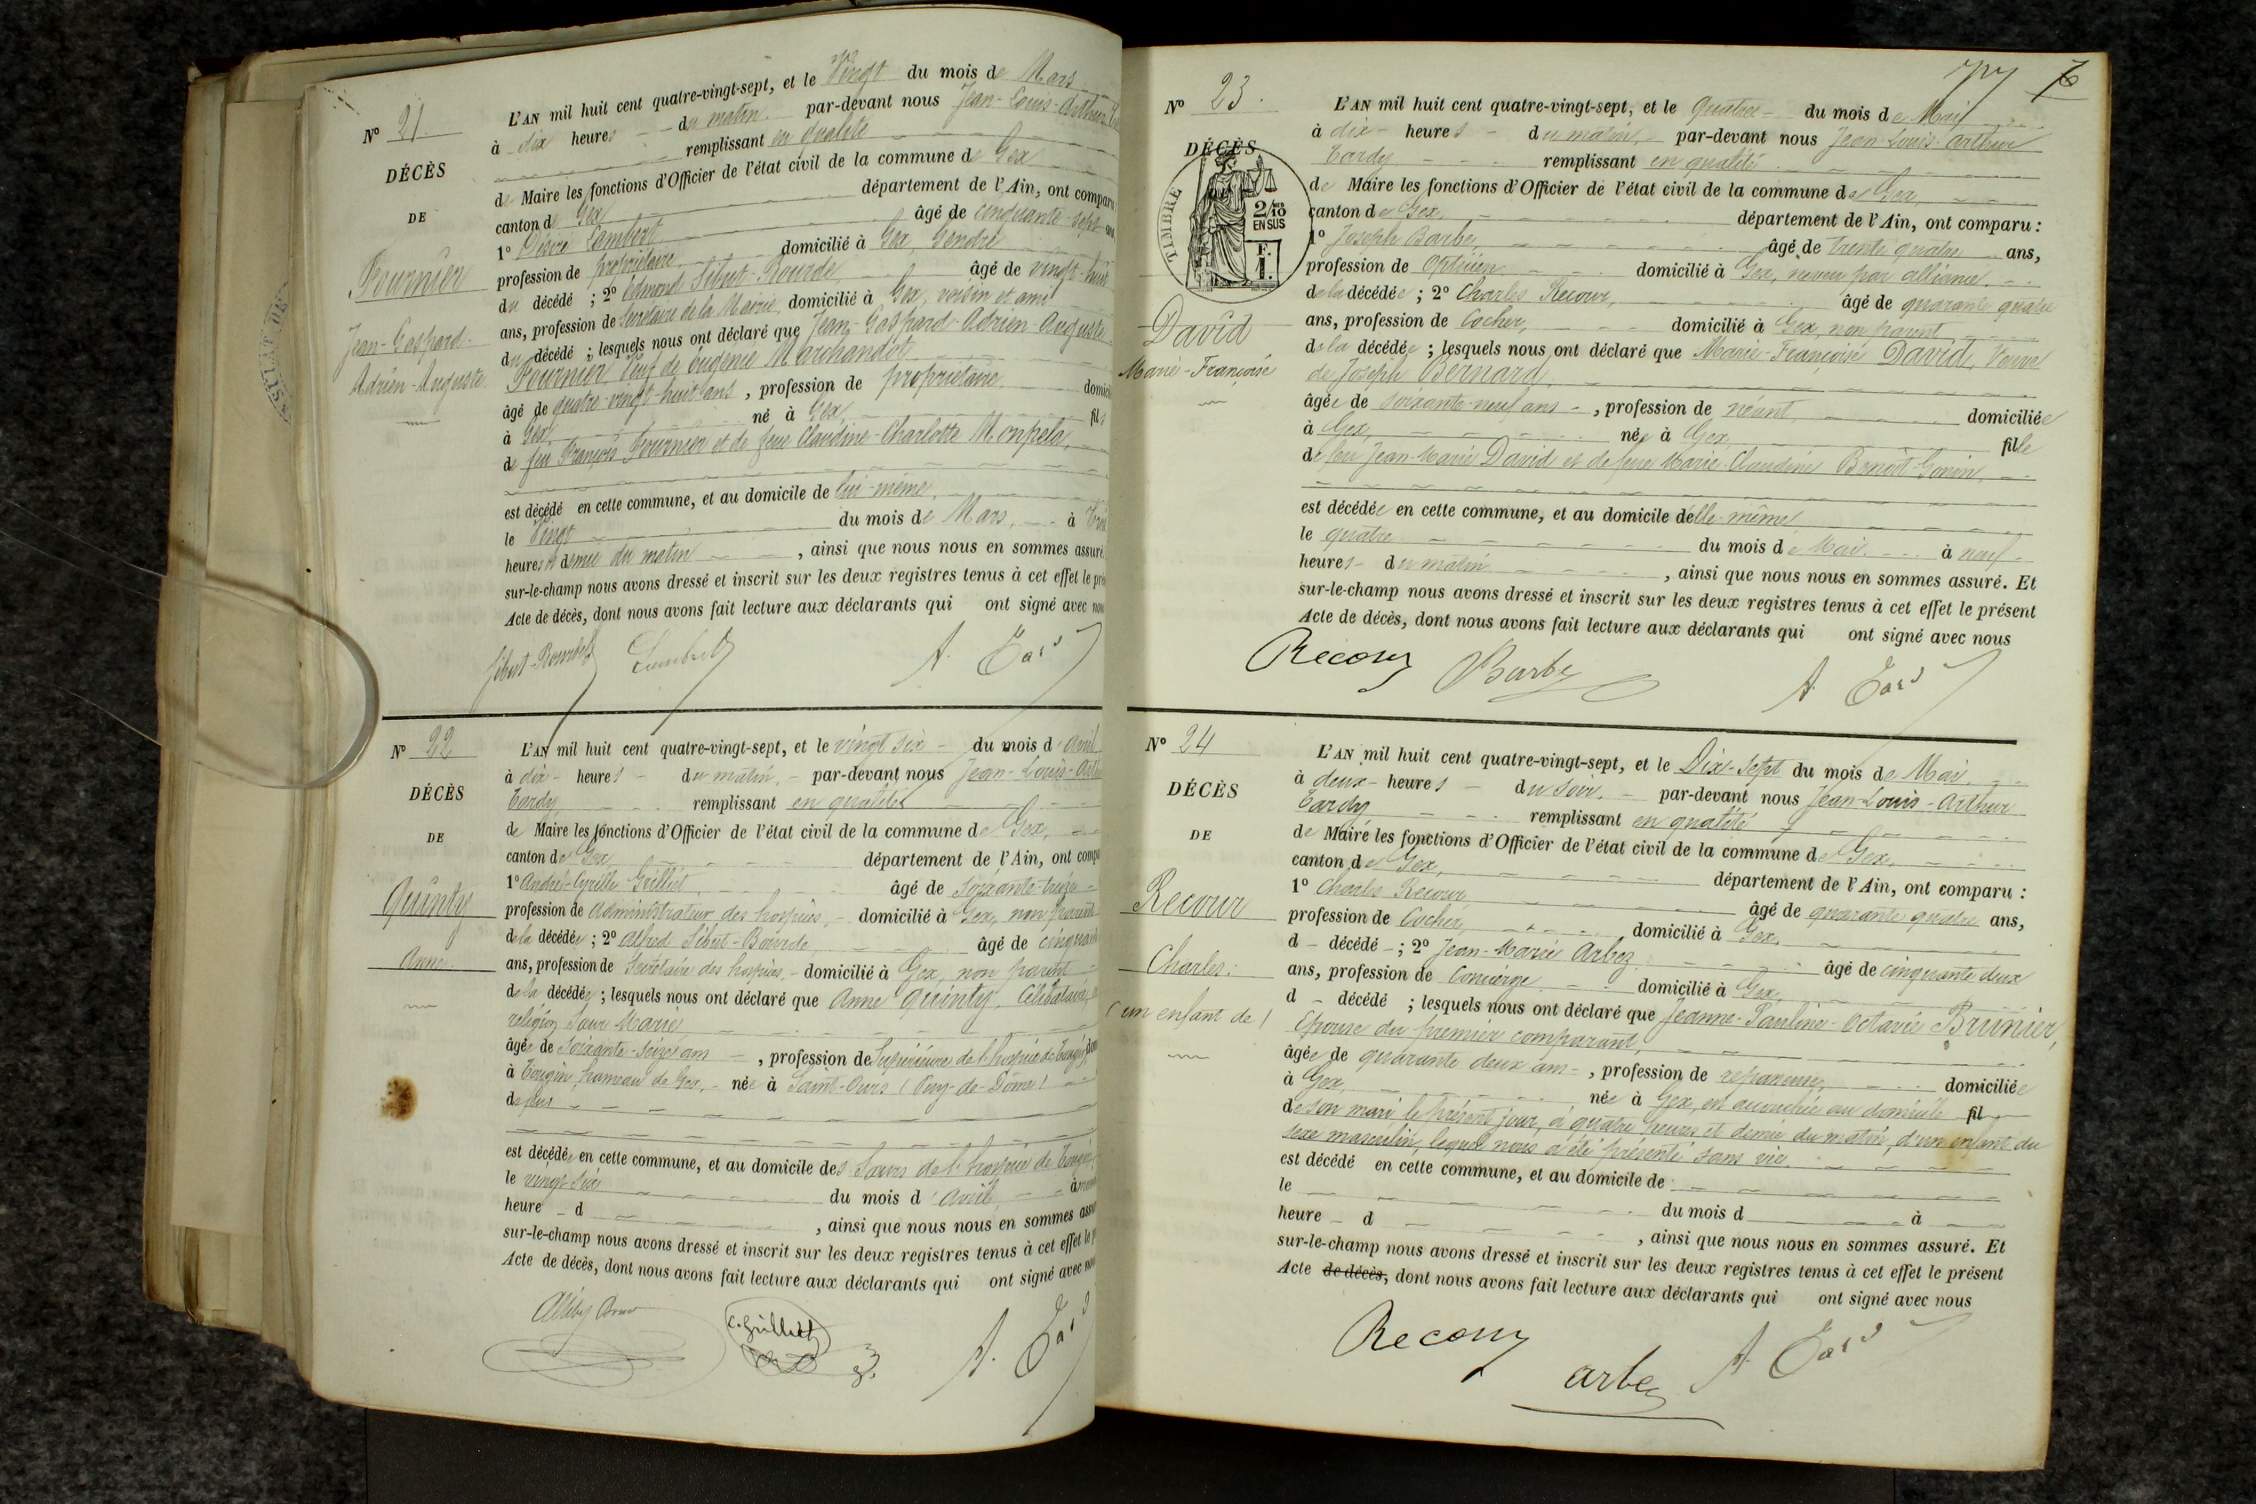 Nº 21.
DÉCÈS
DE
Fournier
Jean-Gaspard-
Adrien-Auguste
L'AN mil huit cent quatre-vingt-sept, et le Vingt du mois de Mars
à dix heures du matin par-devant nous Jean-Louis-Arthur
remplissant en qualité
de Maire les fonctions d'Officier de l'état civil de la commune de Gex
canton de Gex département de l'Ain, ont comparu
1º Désiré Lambert âgé de cinquante-sept ans
profession de propriétaire domicilié à Gex, Gendre
du décédé ; 2º Edmond Sibut-Bourde âgé de vingt-huit
ans, profession de Secrétaire de la Mairie, domicilié à Gex, voisin et ami
du décédé ; lesquels nous ont déclaré que Jean-Gaspard-Adrien-Auguste
Fournier, Veuf de Eugénie Marchandot
âgé de quatre-vingt-huit ans, profession de propriétaire domici
à Gex, né à Gex fils
de feu François Fournier et de feue Claudine-Charlotte Monpela,
est décédé en cette commune, et au domicile de lui-même,
le Vingt du mois de Mars, à Trois
heures & demie du matin, ainsi que nous nous en sommes assuré.
sur-le-champ nous avons dressé et inscrit sur les deux registres tenus à cet effet le pré
Acte de décès, dont nous avons fait lecture aux déclarants qui ont signé avec nous
Sibut-Bourde Lambert A. Tardy
Nº 22
DÉCÈS
DE
Quinty
Anne
L'AN mil huit cent quatre-vingt-sept, et le vingt six du mois d'avril
à dix heures du matin, par-devant nous Jean-Louis-Art
Tardy remplissant en qualité
de Maire les fonctions d'Officier de l'état civil de la commune de Gex,
canton de Gex département de l'Ain, ont compa
1º André-Cyrille Grilliet, âgé de soixante-treize
profession de Administrateur des hospices, domicilié à Gex, non parent
de la décédée ; 2º Alfred Sibut-Bourde âgé de cinquante
ans, profession de Secrétaire des hospices, domicilié à Gex, non parent
de la décédée ; lesquels nous ont déclaré que Anne Quinty, Célibataire, en
religion Sœur Marie
âgée de Soixante-Seize ans, profession de Supérieure de l'hospice de Tougin, dom
à Tougin, hameau de Gex, née à Saint-Ours (Puy-de-Dôme)
de plus
est décédée en cette commune, et au domicile des Sœurs de l'hospice de Tougin,
le vingt Six du mois d'avril, à
heure d , ainsi que nous nous en sommes assu
sur-le-champ nous avons dressé et inscrit sur les deux registres tenus à cet effet le p
Acte de décès, dont nous avons fait lecture aux déclarants qui ont signé avec nous
C. Grilliet A. Tardy
77 76
Nº 23.
DÉCÈS
TIMBRE
2/10
EN SUS
F.
1.
David
Marie-Françoise
L'AN mil huit cent quatre-vingt-sept, et le Quatre du mois de Mai
à dix heures du matin, par-devant nous Jean-Louis-Arthur
Tardy remplissant en qualité
de Maire les fonctions d'Officier de l'état civil de la commune de Gex
canton de Gex, département de l'Ain, ont comparu :
1º Joseph Barbe, âgé de trente quatre ans,
profession de Opticien domicilié à Gex, neveu par alliance
de la décédée ; 2º Charles Recour, âgé de quarante quatre
ans, profession de Cocher, domicilié à Gex, non parent
de la décédée ; lesquels nous ont déclaré que Marie-Françoise David, Veuve
de Joseph Bernard,
âgée de soixante-neuf ans, profession de néant domiciliée
à Gex, née à Gex, fille
de feu Jean-Marie David et de feue Marie-Claudine Benoit-Gonin,
est décédée en cette commune, et au domicile d'elle-même
le quatre du mois de Mai à neuf
heures du matin, ainsi que nous nous en sommes assuré. Et
sur-le-champ nous avons dressé et inscrit sur les deux registres tenus à cet effet le présent
Acte de décès, dont nous avons fait lecture aux déclarants qui ont signé avec nous
Recour Barbe A. Tardy
Nº 24
DÉCÈS
DE
Recour
Charles.
(un enfant de)
L'AN mil huit cent quatre-vingt-sept, et le Dix-Sept du mois de Mai
à deux heures du soir, par-devant nous Jean-Louis-Arthur
Tardy remplissant en qualité
de Maire les fonctions d'Officier de l'état civil de la commune de Gex,
canton de Gex, département de l'Ain, ont comparu :
1º Charles Recour, âgé de quarante quatre ans,
profession de Cocher, domicilié à Gex,
d décédé ; 2º Jean-Marie Arbez âgé de cinquante deux
ans, profession de Concierge domicilié à Gex,
d décédé ; lesquels nous ont déclaré que Jeanne-Pauline-Octavie Brunier,
Épouse du premier comparant,
âgée de quarante deux ans, profession de repasseuse, domiciliée
à Gex née à Gex, est accouchée au domicile fil
de son mari le présent jour, à quatre heures et demie du matin, d'un enfant du
sexe masculin, lequel nous a été présenté sans vie.
est décédé en cette commune, et au domicile de
le du mois d à
heure d , ainsi que nous nous en sommes assuré. Et
sur-le-champ nous avons dressé et inscrit sur les deux registres tenus à cet effet le présent
Acte de décès, dont nous avons fait lecture aux déclarants qui ont signé avec nous
Recour arbez A. Tardy